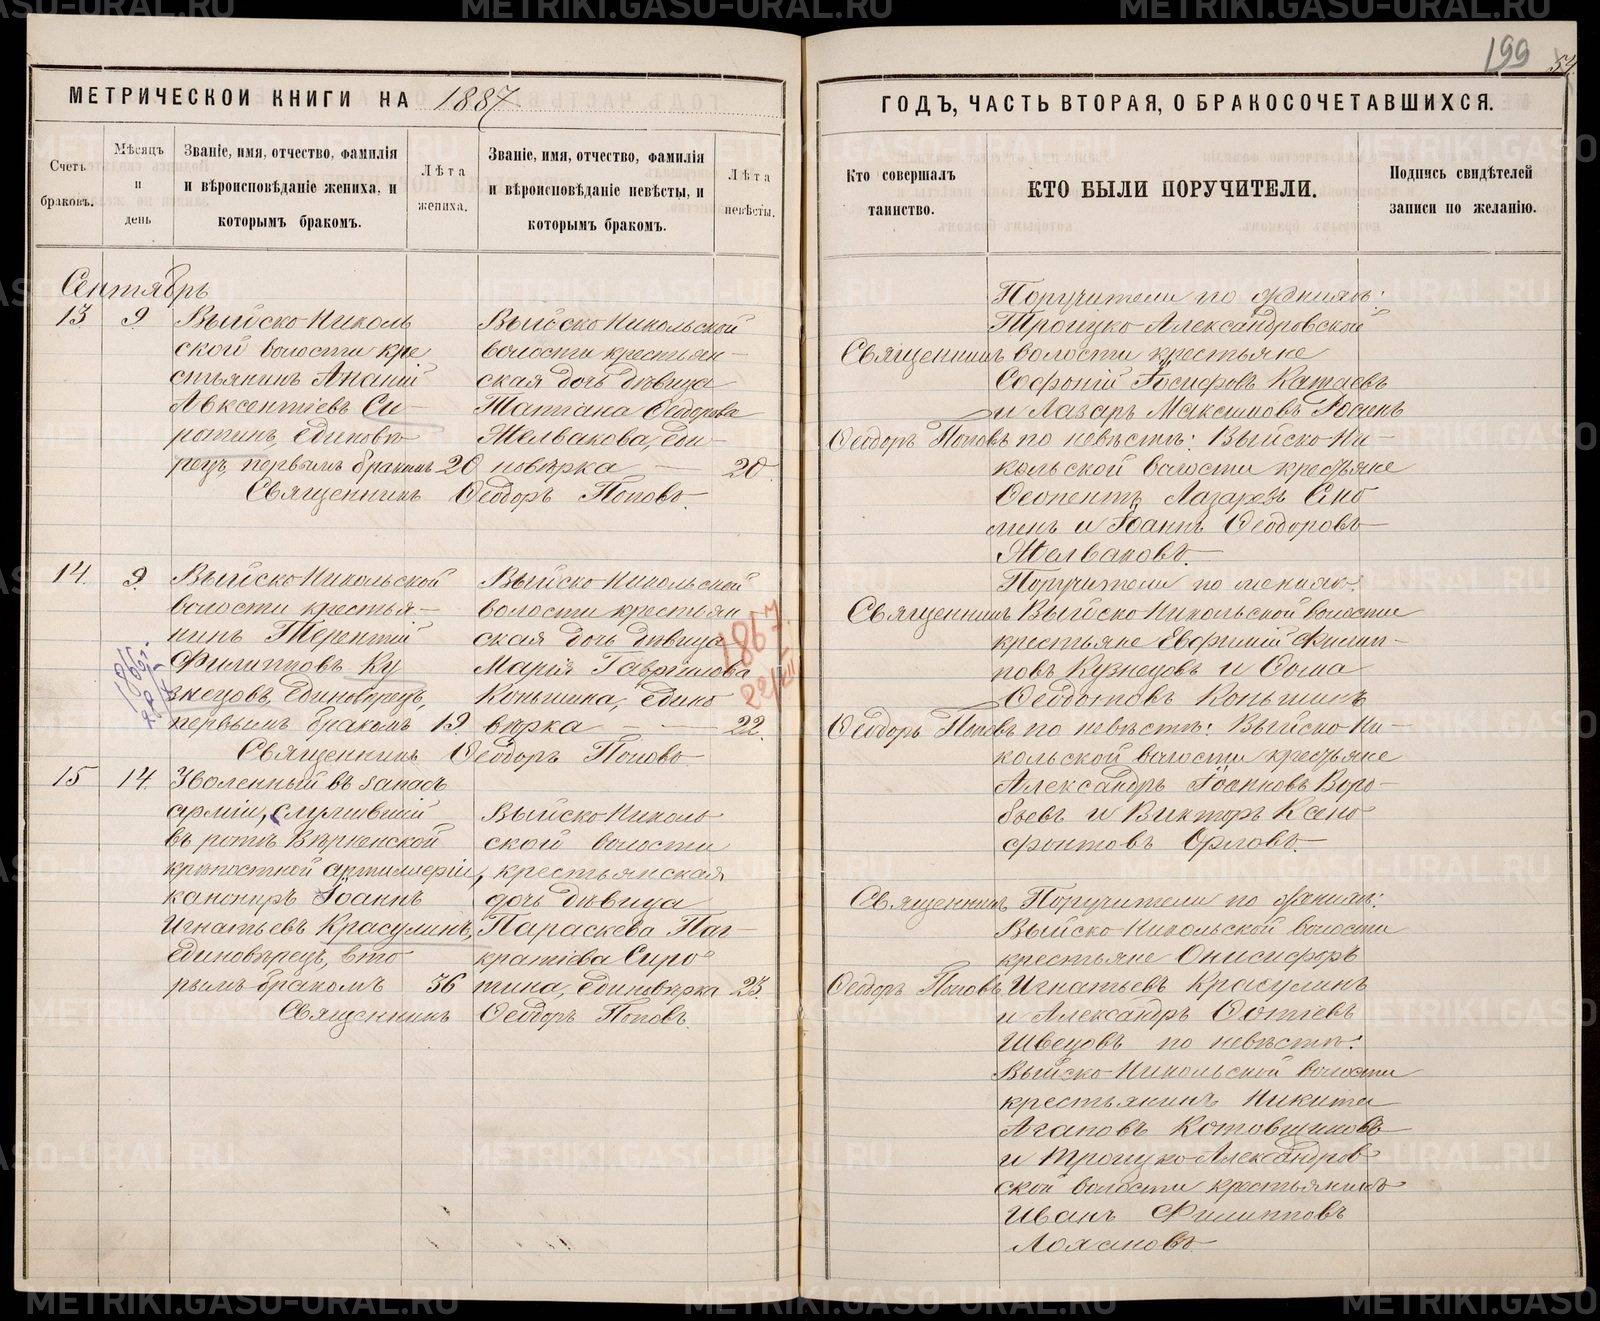 199
МЕТРИЧЕСКОЙ КНИГИ НА 1887
ГОДЪ, ЧАСТЬ ВТОРАЯ, О БРАКОСОЧЕТАВШИХСЯ.
Счетъ браковъ.
Мѣсяцъ и день
Званіе, имя, отчество, фамилія
и вѣроисповѣданіе жениха, и
которымъ бракомъ.
Лѣта
жениха.
Званіе, имя, отчество, фамилія
и вѣроисповѣданіе невѣсты, и
которымъ бракомъ.
Лѣта
невѣсты.
Кто совершалъ
таинство.
КТО БЫЛИ ПОРУЧИТЕЛИ.
Подпись свидѣтелей
записи по желанію.
Сентябрь
13 9
Выйско-Николь
ской волости кре
стьянинъ Ананій
Авксентіевъ Си-
ротинъ, единовѣ-
рецъ, первымъ бракомъ 20
Выйско-Никольской
волости крестьян-
ская дочь дѣвица
Татіана Ѳеодорова
Желвакова, еди-
новѣрка — 20
Священникъ Ѳеодоръ Поповъ
Священникъ
Ѳеодоръ Поповъ
Поручители по женихѣ:
Троицко-Александровской
волости крестьяне
Софоній Іосифовъ Катаевъ
и Лазарь Максимовъ
по невѣстѣ: Выйско-Ни-
кольской волости крестьяне
Ѳеопентъ Лазаревъ
и Іоаннъ Ѳеодоровъ
Желваковъ
14. 9
Выйско-Никольской
волости крестья-
нинъ Терентій
Филипповъ Ку
знецовъ, единовѣрецъ,
первымъ бракомъ 19.
Выйско-Никольской
волости крестьян
ская дочь дѣвица
Марія Гавріилова
Коньшина, едино
вѣрка — 22.
1867
Священникъ Ѳеодоръ Поповъ
Священникъ
Ѳеодоръ Поповъ
Поручители по женихѣ:
Выйско-Никольской волости
крестьяне Евфимій Филип-
повъ Кузнецовъ и Ѳома
Ѳеодотовъ Коньшинъ
по невѣстѣ: Выйско-Ни-
кольской волости крестьяне
Александръ Іоанновъ Воро-
бьевъ и Викторъ Ксено
фонтовъ Орловъ
15 14.
Уволенный въ запасъ
арміи, служившій
въ ротѣ Вѣрненской
крѣпостной артиллеріи,
канониръ Іоаннъ
Игнатьевъ Красулинъ,
единовѣрецъ, вто
рымъ бракомъ 36
Выйско-Николь
ской волости
крестьянская
дочь дѣвица
Параскева Пан-
кратіева Сиро
тина, единовѣрка 23.
Священникъ Ѳеодоръ Поповъ.
Священникъ
Ѳеодоръ Поповъ
Поручители по женихѣ:
Выйско-Никольской волости
крестьяне Онисифоръ
Игнатьевъ Красулинъ
и Александръ Фотіевъ
Швецовъ по невѣстѣ:
Выйско-Никольской волости
крестьянинъ Никита
Агаповъ Котовщиковъ
и Троицко-Александров
ской волости крестьянинъ
Иванъ Филипповъ
Лохановъ
METRIKI.GASO-URAL.RU